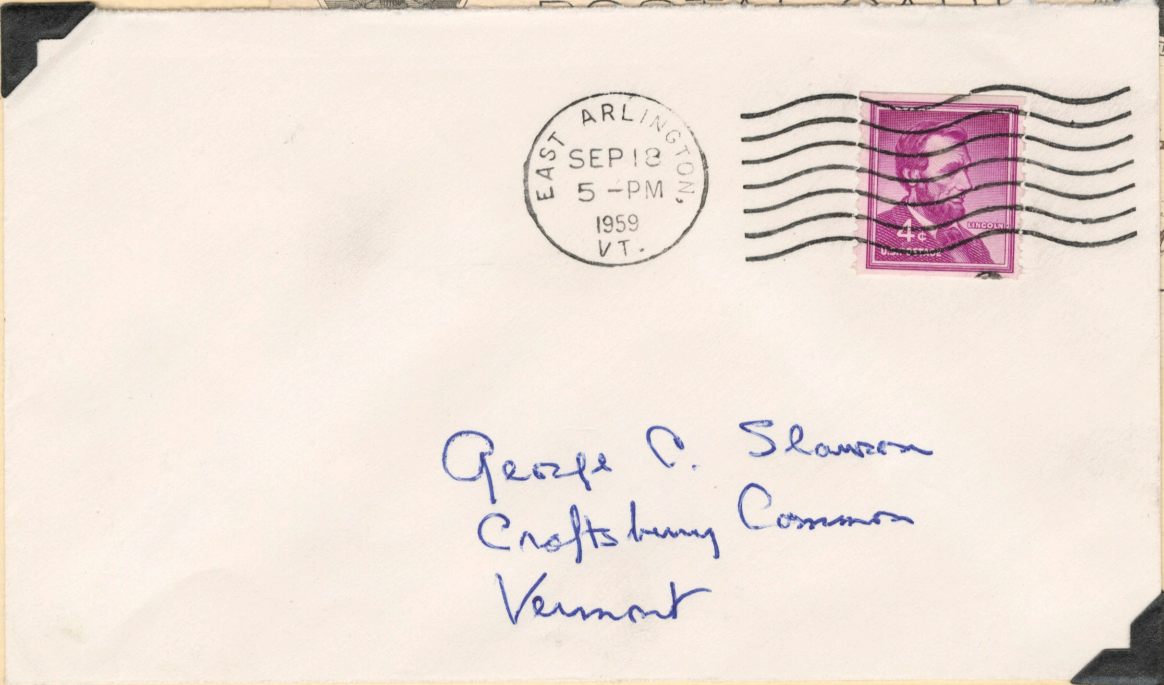 POSTAL CARD
EAST ARLINGTON,
SEP 18
5 -PM
1959
VT.
LINCOLN
4¢
U.S. POSTAGE
George C. Slawson
Craftsbury Common
Vermont